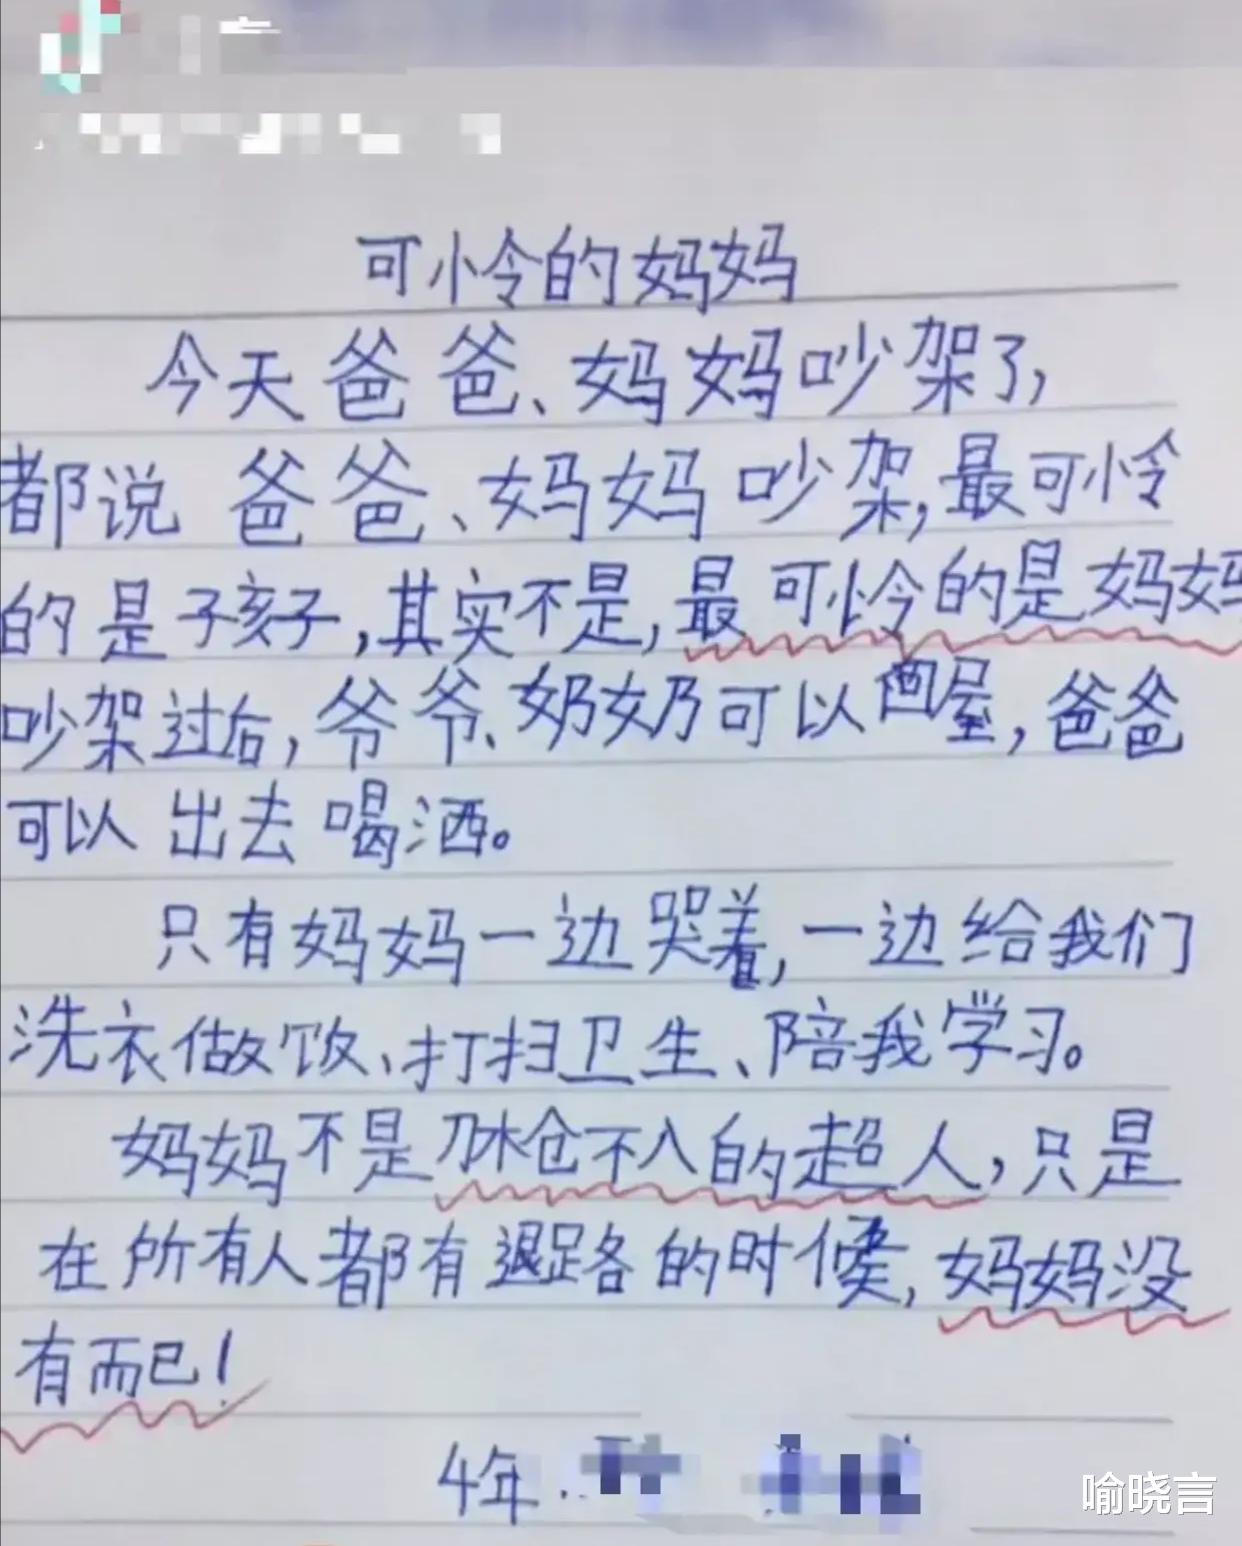 可怜的妈妈
今天爸爸、妈妈吵架了,
都说爸爸、妈妈吵架,最可怜
的是子孩子,其实不是,最可怜的是妈妈
吵架过后,爷爷、奶奶可以回屋,爸爸
可以出去喝洒。
只有妈妈一边哭着,一边给我们
洗衣做饭、打扫卫生、陪我学习。
妈妈不是刀枪不入的超人,只是
在所有人都有退路的时候,妈妈没
有而已!
4年
喻晓言